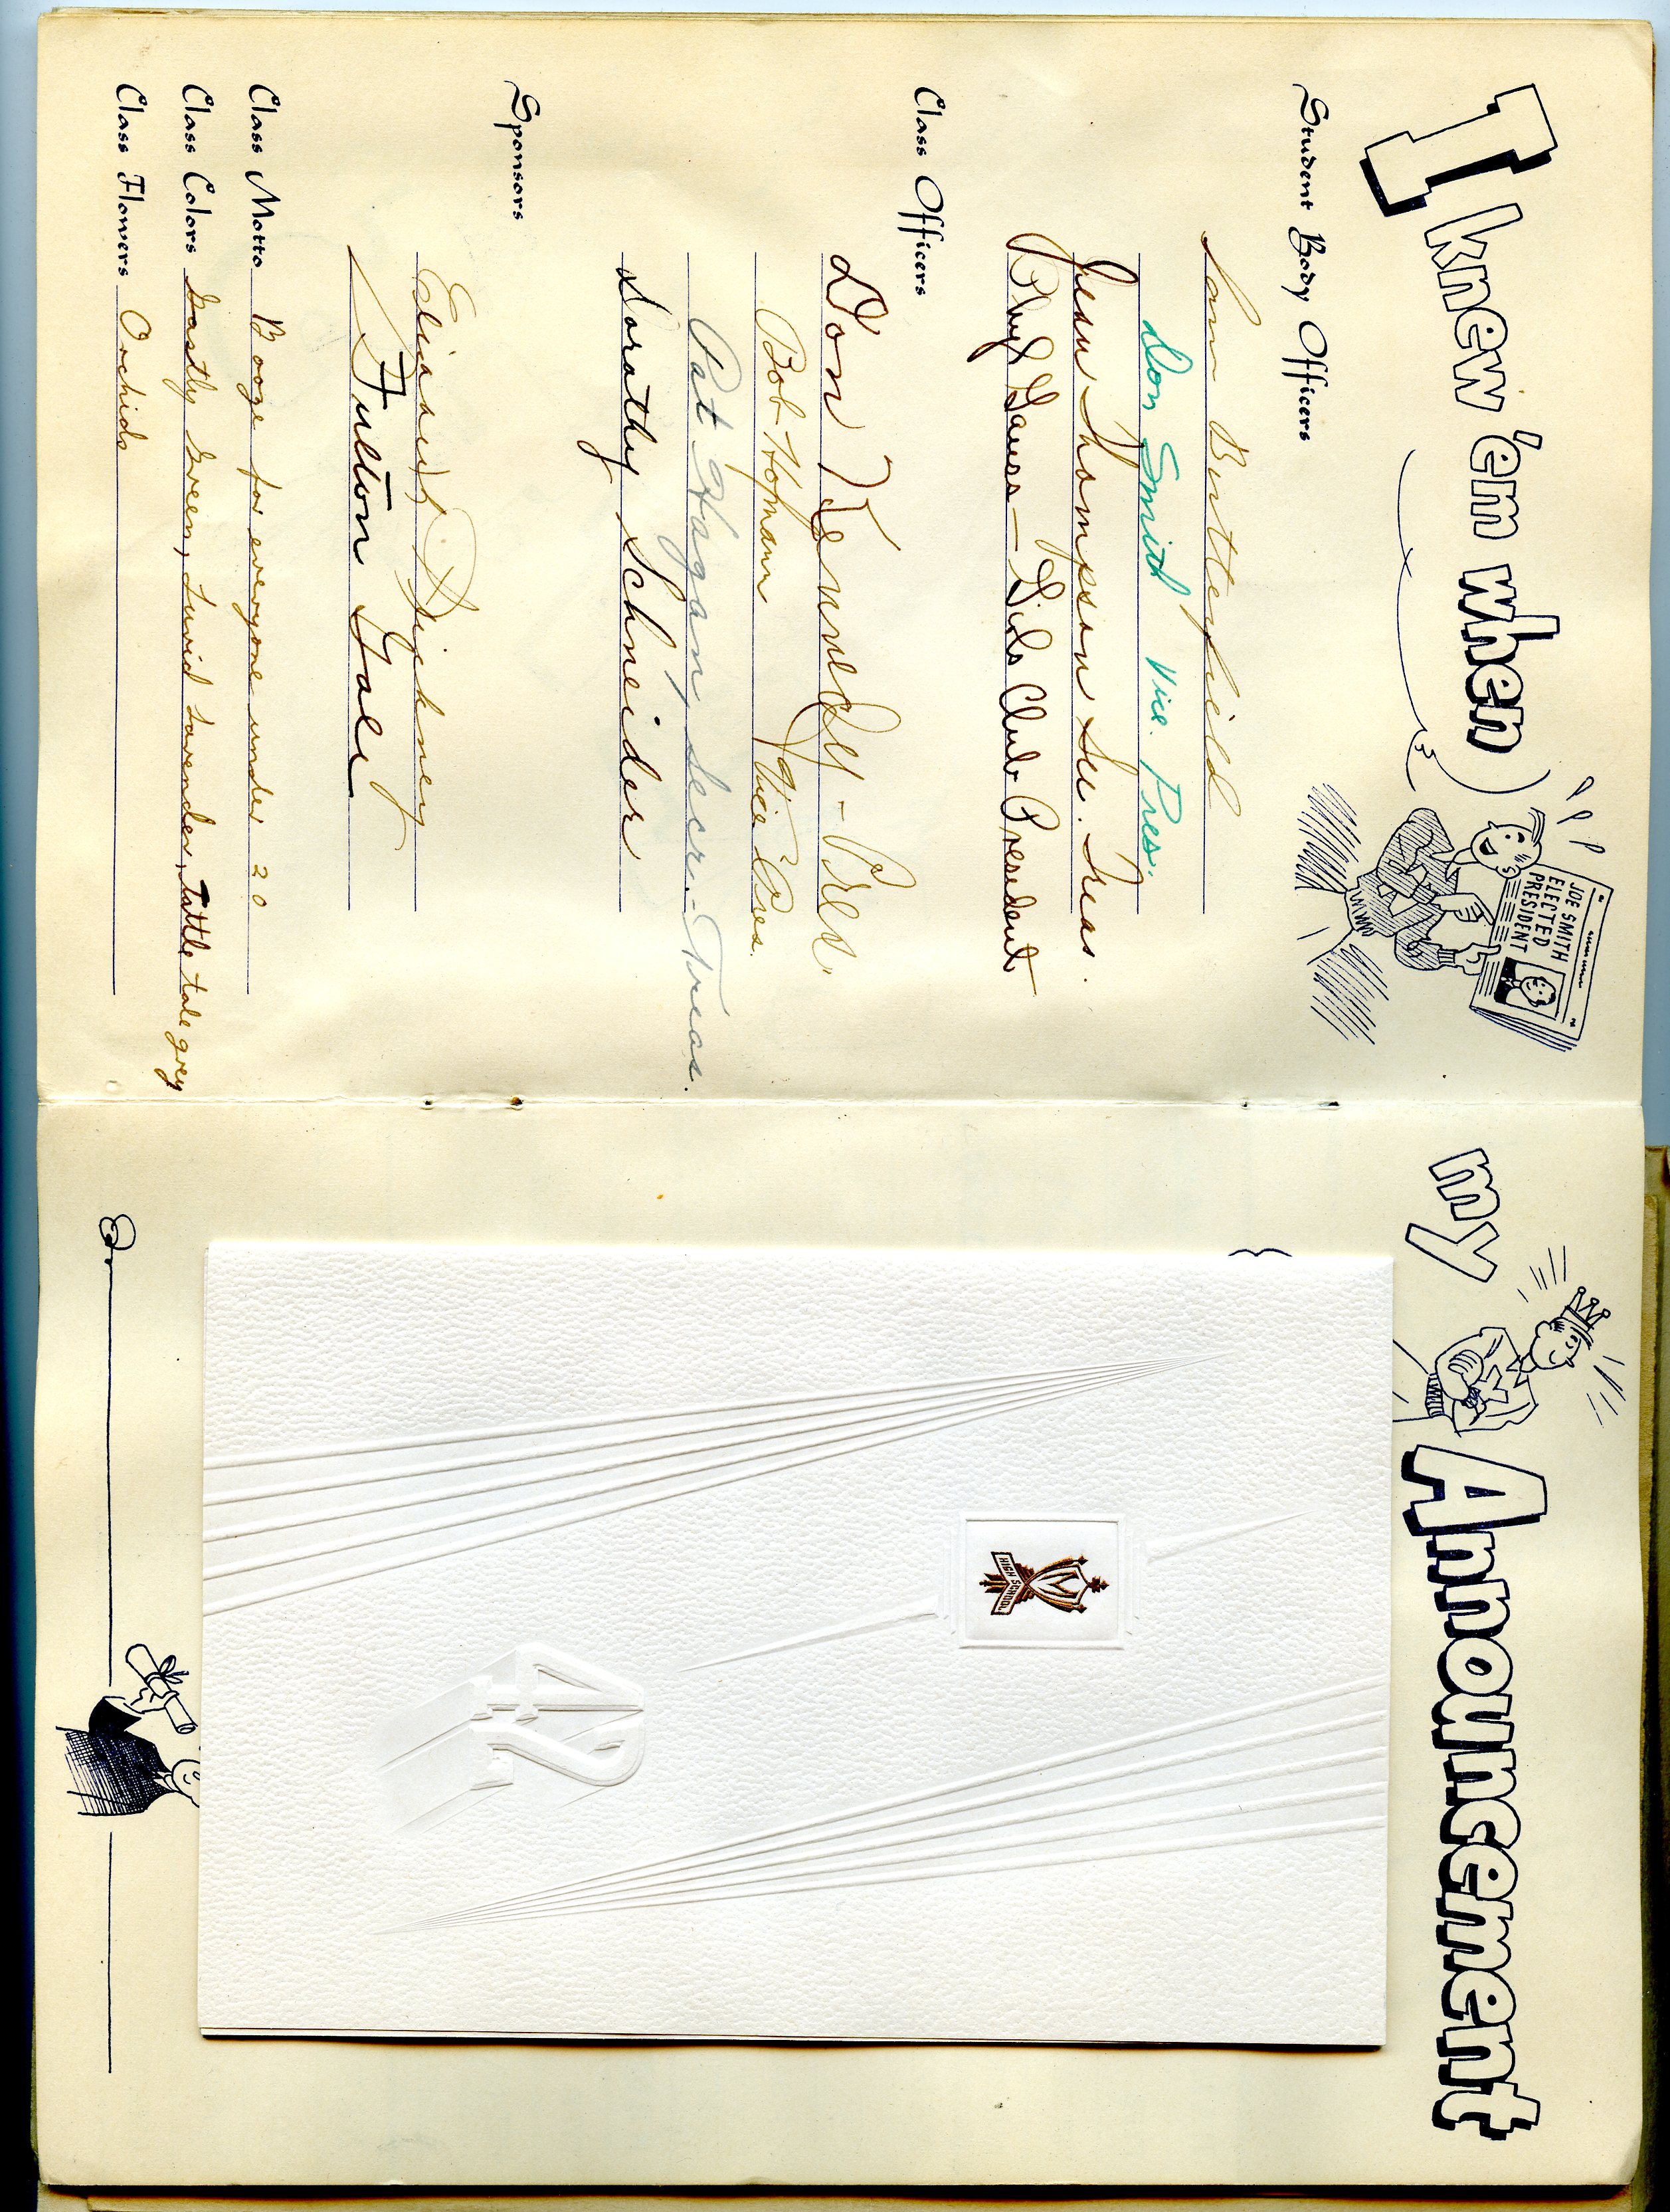 I knew 'em when
JOE SMITH
ELECTED
PRESIDENT
Student Body Officers
Sam Butterfield
Don Smith Vice. Pres.
Jean Thompson Sec. Treas.
Phyl Gauss - Girls Club President
Class Officers
Don Kennedy - Pres.
Bob Hofmann Vice Pres.
Pat Hagan, Secr. - Treas.
Dorothy Schneider
Sponsors
Digehney
Fulton Gale
Class Motto Booze for everyone under 20
Class Colors Gastly Green, Lurid Lavender, Tattle tale grey
Class Flowers Orchids
my Announcement
M
HIGH SCHOOL
42